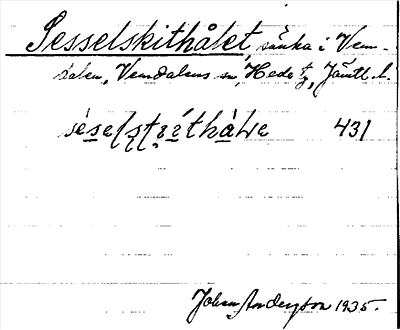 Sesselskithålet, sänka i Vem-
dalen, Vemdalens sn, Hede tg, Jämtl. l.
431
Johan Anderzon 1935.